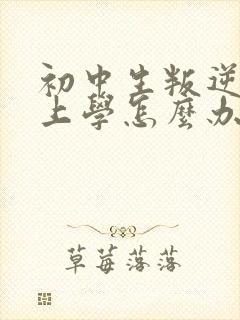 初中生叛逆
上學怎麼办
草莓落落